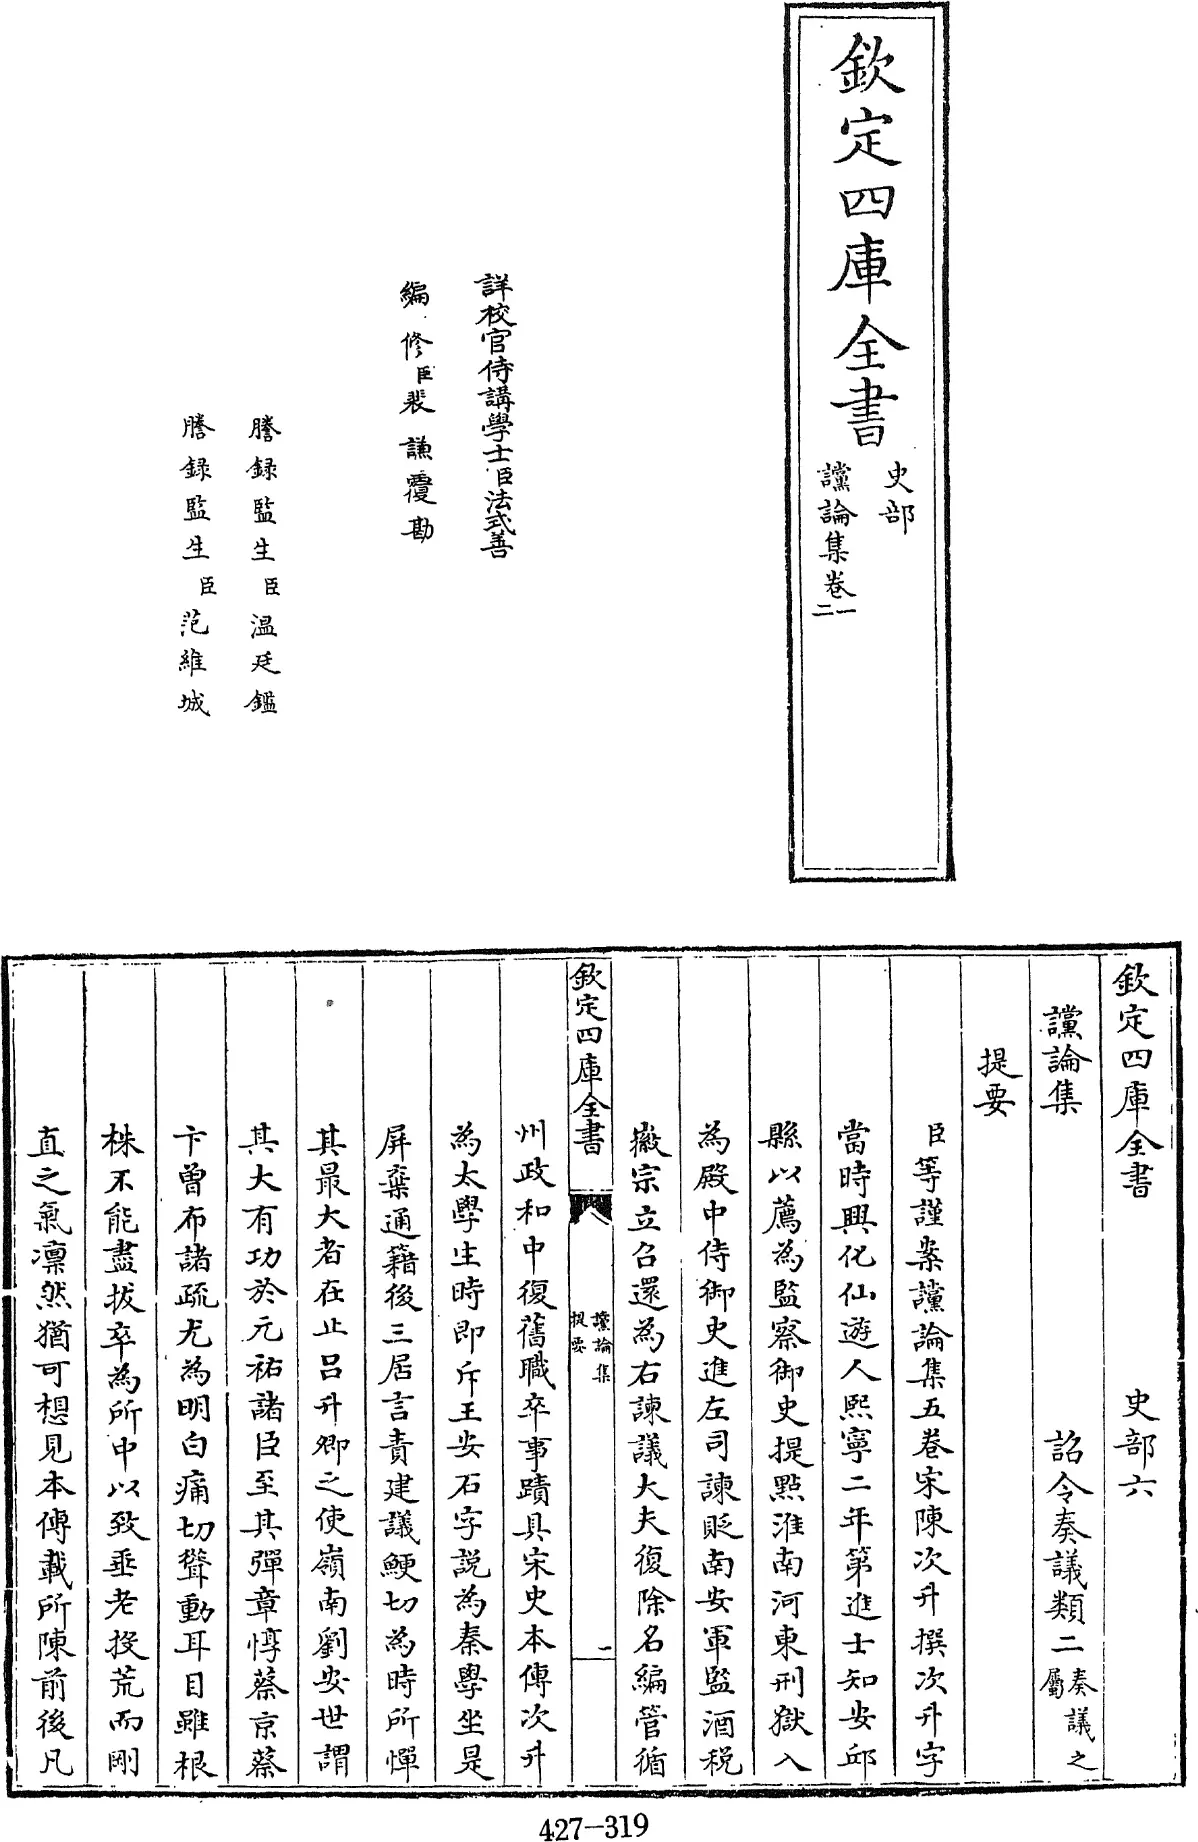 欽定四庫全書
史部
讜論集卷一
二
詳校官侍講學士臣法式善
編修臣裴謙覆勘
謄錄監生臣溫廷鑑
謄錄監生臣范維城
欽定四庫全書 史部六
讜論集 詔令奏議類二奏議之
屬
提要
臣等謹案讜論集五卷宋陳次升撰次升字
當時興化仙遊人熙寧二年第進士知安邱
縣以薦為監察御史提點淮南河東刑獄入
為殿中侍御史進左司諫貶南安軍監酒稅
徽宗立召還為右諫議大夫復除名編管循
欽定四庫全書
讜論集
提要
一
州政和中復舊職卒事蹟具宋史本傳次升
為太學生時即斥王安石字說為秦學坐是
屏棄通籍後三居言責建議鯁切為時所憚
其最大者在止呂升卿之使嶺南劉安世謂
其大有功於元祐諸臣至其彈章惇蔡京蔡
卞曾布諸疏尤為明白痛切聳動耳目雖根
株不能盡拔卒為所中以致垂老投荒而剛
直之氣凛然猶可想見本傳載所陳前後凡
427-319